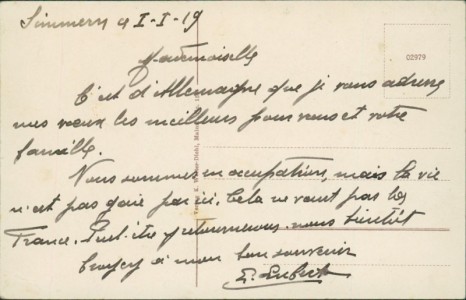 Simmern le I-I-19
02979
Mademoiselle
C'est d'Allemagne que je vous adresse
mes voeux les meilleurs pour vous et votre
famille.
Nous sommes en occupation, mais la vie
n'est pas gaie par ici. Cela ne vaut pas la
France. Peut-être y retournerons-nous bientôt
Croyez à mon bon souvenir